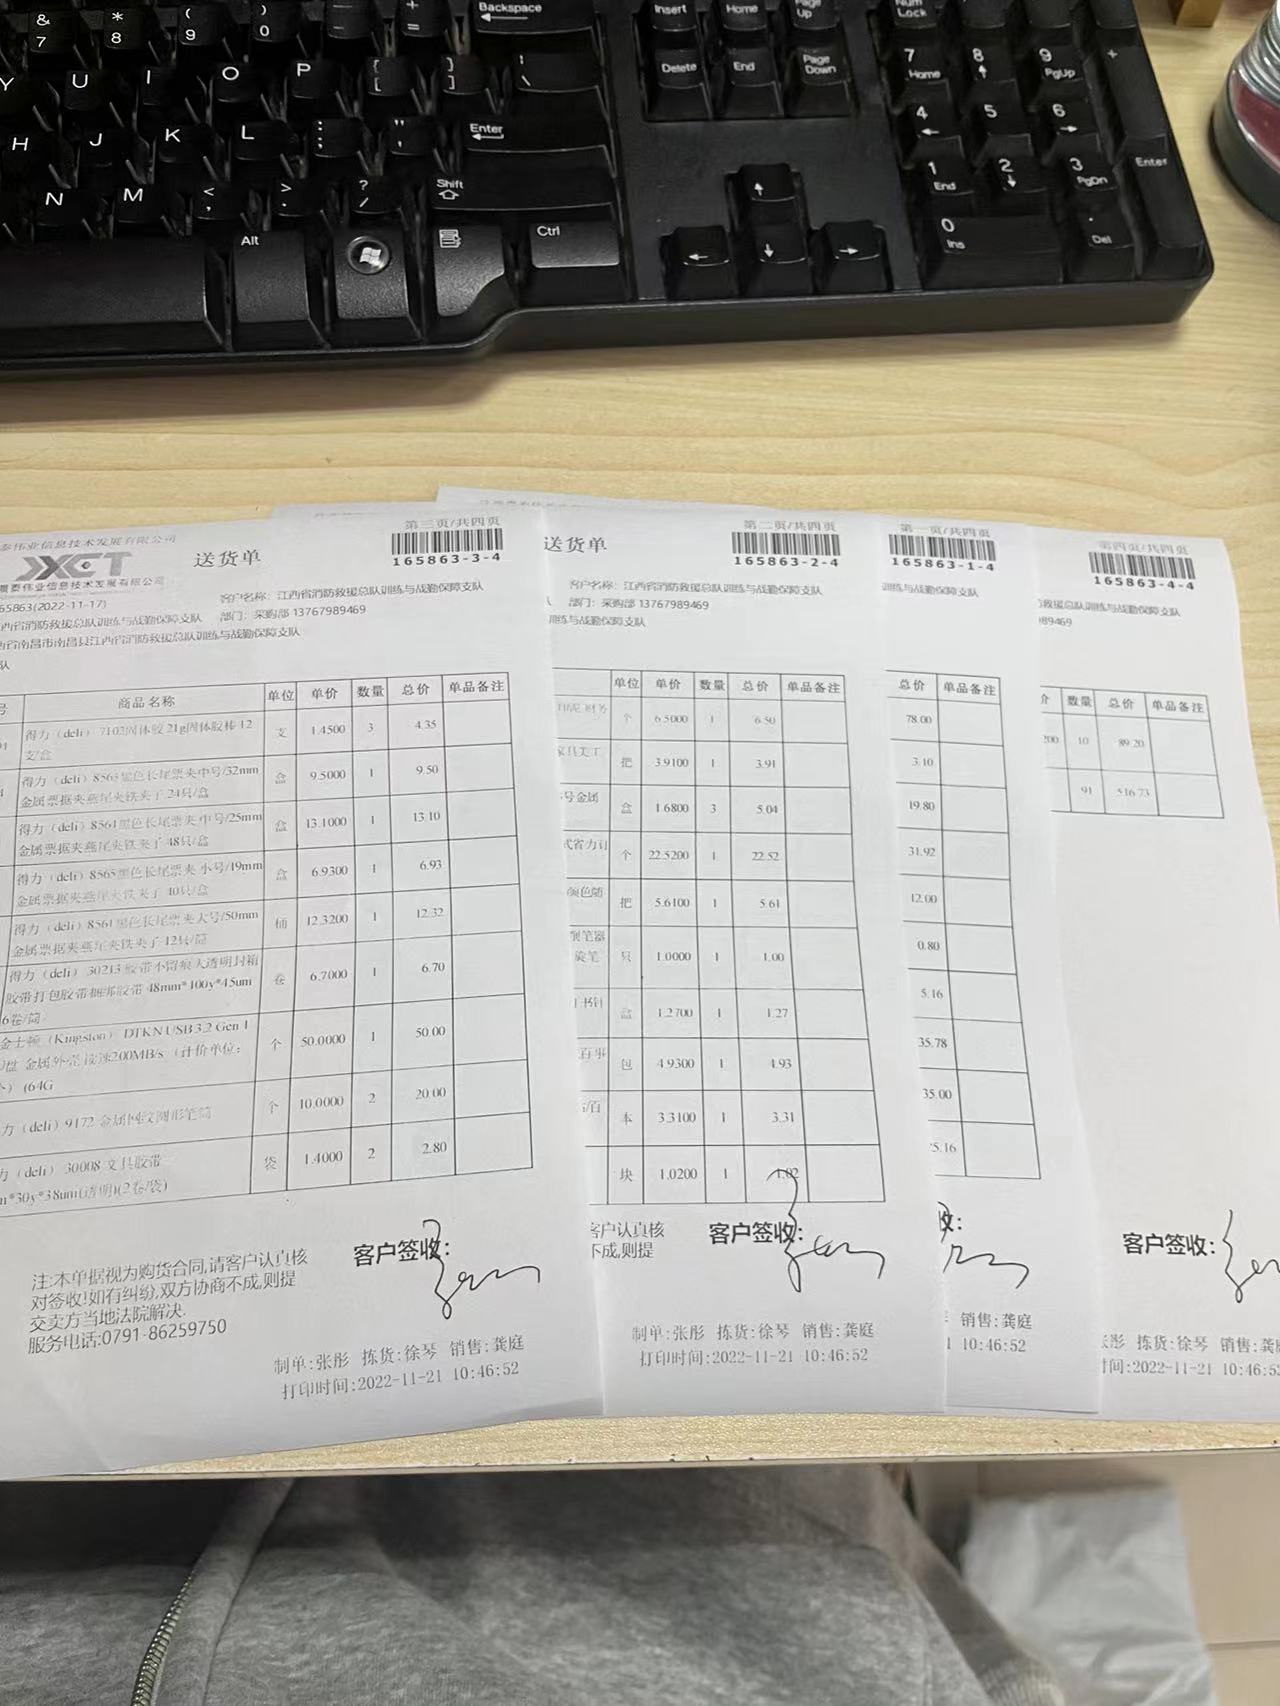 & * ( ) + Backspace Insert Home Page Up Num Lock
7 8 9 0 =
Y U I O P { [ } ] \ Delete End Page Down 7 Home 8 9 PgUp +
H J K L : ; " ' Enter 4 5 6
N M < , > . ? / Shift 1 End 2 3 PgDn Enter
Alt Ctrl 0 Ins . Del
泰伟业信息技术发展有限公司
第三页/共四页
送货单
165863-3-4
XCT
晨泰伟业信息技术发展有限公司
65863(2022-11-17)
客户名称: 江西省消防救援总队训练与战勤保障支队
西省消防救援总队训练与战勤保障支队 部门: 采购部 13767989469
省南昌市南昌县江西省消防救援总队训练与战勤保障支队
队
号 商品名称 单位 单价 数量 总价 单品备注
得力（deli）7102固体胶 21g固体胶棒 12
支/盒
支 1.4500 3 4.35
得力（deli）8563黑色长尾票夹中号/32mm
金属票据夹燕尾夹铁夹子 24只/盒
盒 9.5000 1 9.50
得力（deli）8564黑色长尾票夹 中号/25mm
金属票据夹燕尾夹铁夹子 48只/盒
盒 13.1000 1 13.10
得力（deli）8565黑色长尾票夹 小号/19mm
金属票据夹燕尾夹铁夹子 40只/盒
盒 6.9300 1 6.93
得力（deli）8561黑色长尾票夹大号/50mm
金属票据夹燕尾夹铁夹子 12只/筒
桶 12.3200 1 12.32
得力（deli）30213 胶带不留痕大透明封箱
胶带打包胶带捆绑胶带 48mm*100y*45um
6卷/筒
卷 6.7000 1 6.70
金士顿（Kingston） DTKN USB 3.2 Gen 1
盘 金属外壳 读速200MB/s （计价单位:
个） (64G
个 50.0000 1 50.00
力（deli）9172 金属网纹圆形笔筒
个 10.0000 2 20.00
力（deli） 30008 文具胶带
m*30y*38um(透明)(2卷/袋)
袋 1.4000 2 2.80
注:本单据视为购货合同,请客户认真核
对签收!如有纠纷,双方协商不成,则提
交卖方当地法院解决.
服务电话:0791-86259750
客户签收:
制单:张彤 拣货:徐琴 销售:龚庭
打印时间:2022-11-21 10:46:52
第二页/共四页
送货单
165863-2-4
客户名称: 江西省消防救援总队训练与战勤保障支队
部门: 采购部 13767989469
训练与战勤保障支队
单位 单价 数量 总价 单品备注
个 6.5000 1 6.50
家具美工
把 3.9100 1 3.91
号金属
盒 1.6800 3 5.04
式省力订
个 22.5200 1 22.52
颜色随
把 5.6100 1 5.61
削笔器
旋笔
只 1.0000 1 1.00
订书针
盒 1.2700 1 1.27
百事
包 4.9300 1 4.93
本 3.3100 1 3.31
块 1.0200 1 1.02
客户认真核
不成,则提
客户签收:
制单:张彤 拣货:徐琴 销售:龚庭
打印时间:2022-11-21 10:46:52
第一页/共四页
165863-1-4
训练与战勤保障支队
总价 单品备注
78.00
3.10
19.80
31.92
12.00
0.80
5.16
35.78
35.00
5.16
销售:龚庭
1 10:46:52
第四页/共四页
165863-4-4
救援总队训练与战勤保障支队
89469
价 数量 总价 单品备注
200 10 89.20
91 516.73
客户签收:
张彤 拣货:徐琴 销售:龚
间:2022-11-21 10:46:52